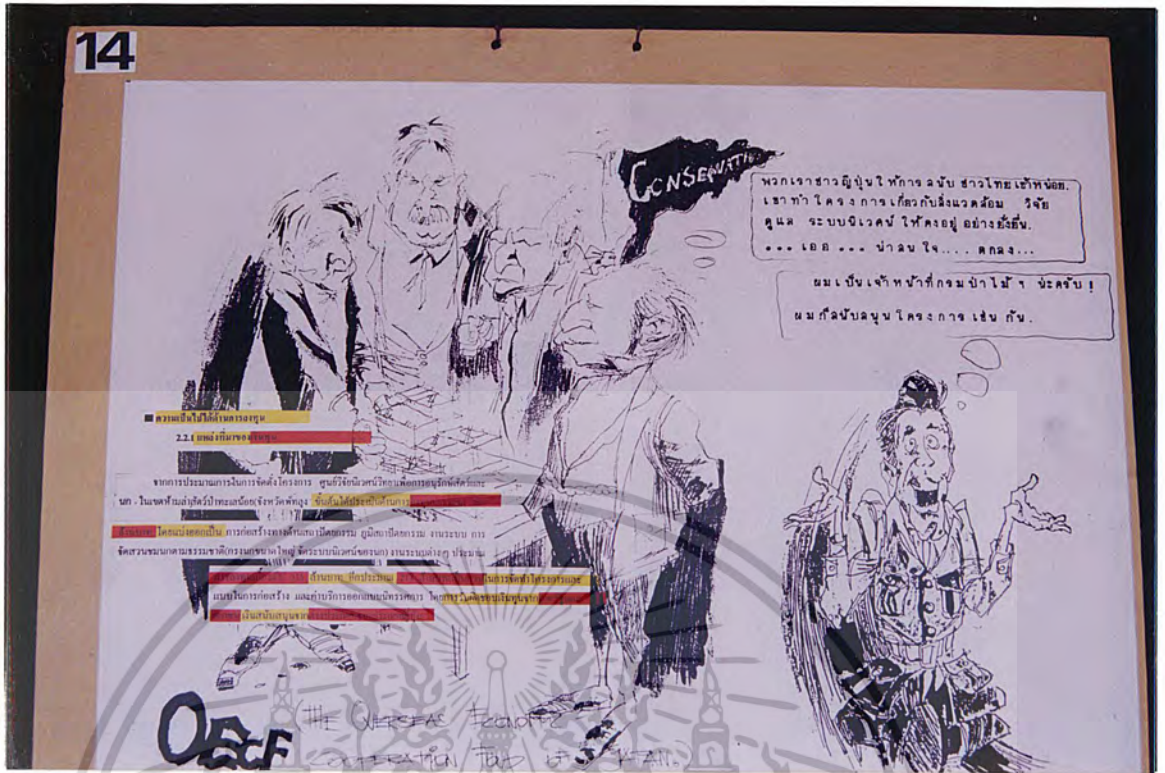 14
CONSERVATI
พวกเราชาวญี่ปุ่นให้การสนับ ชาวไทยเข้าหน่อย.
เขาทำโครงการเกี่ยวกับสิ่งแวดล้อม วิจัย
ดูแล ระบบนิเวศน์ ให้คงอยู่ อย่างยั่งยืน.
... เออ ... น่าสนใจ.... ตกลง...
ผมเป็นเจ้าหน้าที่กรมป่าไม้ ฯ น่ะครับ !
ผมก็สนับสนุนโครงการ เช่น กัน.
ความเป็นไปได้ด้านการลงทุน
2.2.1 แหล่งที่มาของเงินทุน
จากการประมาณการในการจัดตั้งโครงการ ศูนย์วิจัยนิเวศน์วิทยาเพื่อการอนุรักษ์สัตว์และ
นก - ในเขตห้ามล่าสัตว์ป่าทะเลน้อย(จังหวัดพัทลุง ขั้นต้นได้ประเมินด้านการ
ล้านบาท โดยแบ่งออกเป็น การก่อสร้างทางด้านสถาปัตยกรรม ภูมิสถาปัตยกรรม งานระบบ การ
จัดสวนชมนกตามธรรมชาติ(กรงนกขนาดใหญ่ จัดระบบนิเวศน์ของนก) งานระบบต่างๆ ประมาณ
ล้านบาท อีกประมาณ ในการจัดทำโครงการและ
แบบในการก่อสร้าง และค่าบริการออกแบบนิทรรศการ โดยการรับผิดชอบเงินทุนจาก
เงินสนับสนุนจาก
OECF (THE OVERSEAS ECONOMIC
COOPERATION FUND OF JAPAN)